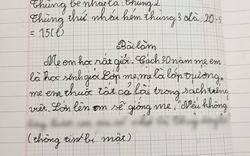 Thùng bé nhất là: thùng 2
Thùng thứ nhất kém thùng 3 là 20-5
= 15(l)
Bài làm
Mẹ em học rất giỏi. Cách 30 năm mẹ em
là học sinh giỏi lớp mẹ, mẹ là lớp trưởng,
mẹ em thuộc tất cả bài trong sách tiếng
việt. Lớn lên em sẽ giống mẹ.
(thông tin bí mật)